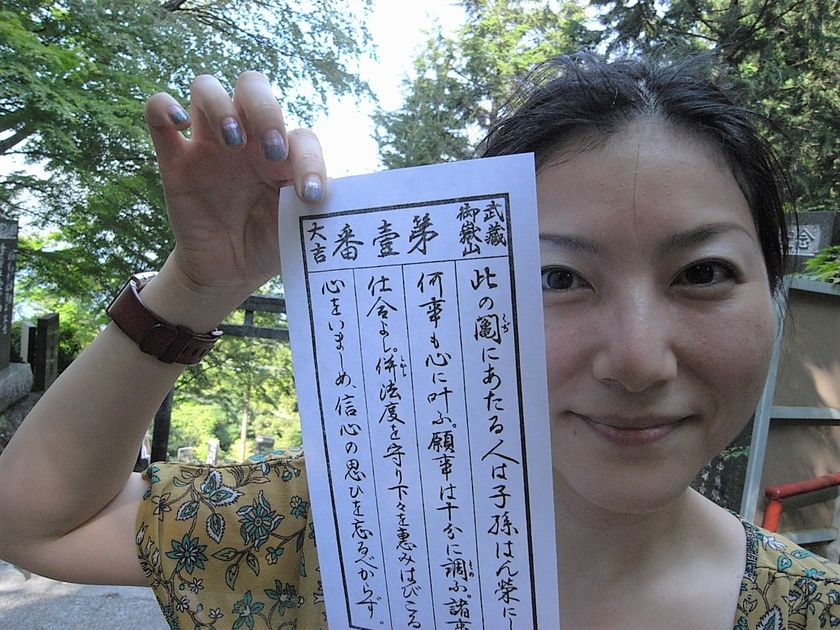 武蔵
御嶽山
第壹番
大吉
此の鬮にあたる人は子孫はん榮にし
くじ
何事も心に叶ふ。願事は十分に調ふ。諸事
仕合よし。併法度を守り下々を惠みはびこる
しかし
心をいましめ、信心の思ひを忘るべからず。